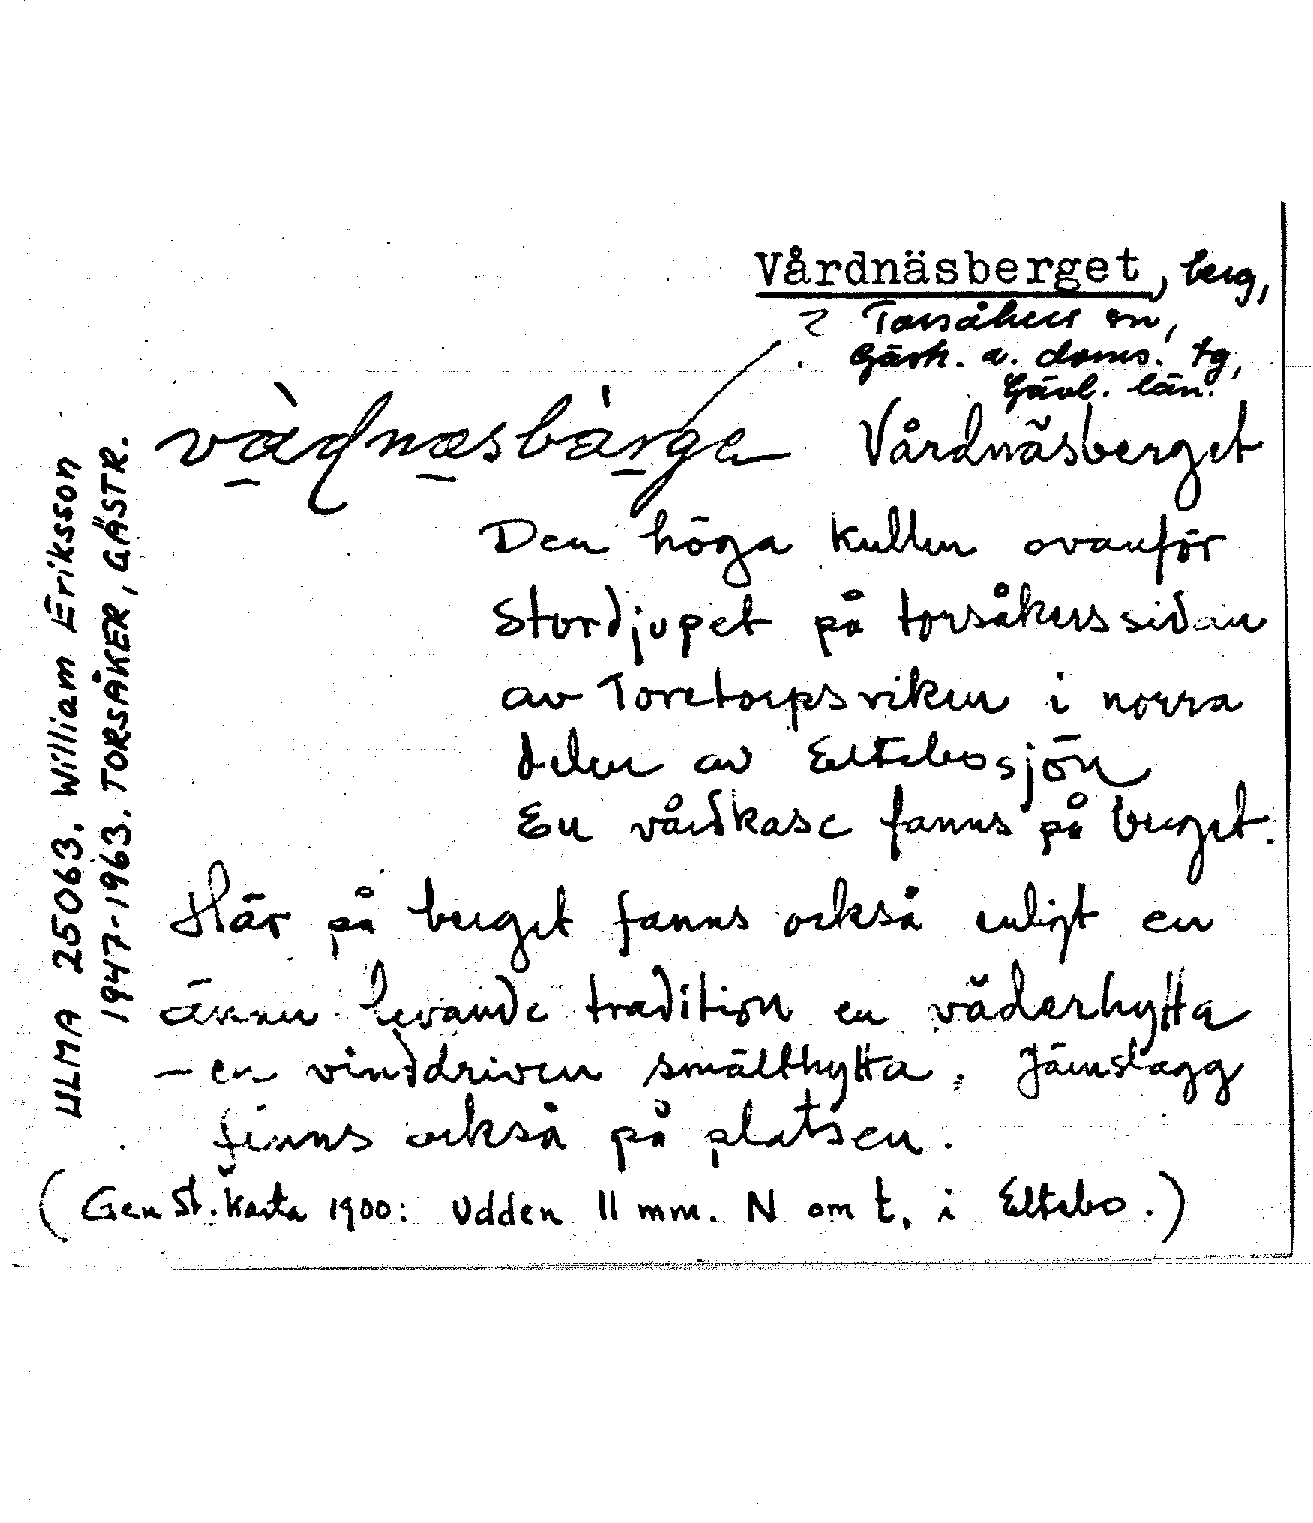 Vårdnäsberget, berg,
? Torsåkers sn,
Gävl. län.
Vårdnäsberget
Den höga kullen ovanför
Stordjupet på torsåkerssidan
av Toretorpsviken i norra
delen av Eltebosjön
En vårdkase fanns på berget.
Här på berget fanns också enligt en
ännu levande tradition en väderhytta
– en vinddriven smälthytta. Järnslagg
finns också på platsen.
(Gen St. Karta 1900: Udden 11 mm. N om t. i Eltebo.)
ULMA 25063. William Eriksson
1947-1963. TORSÅKER, GÄSTR.